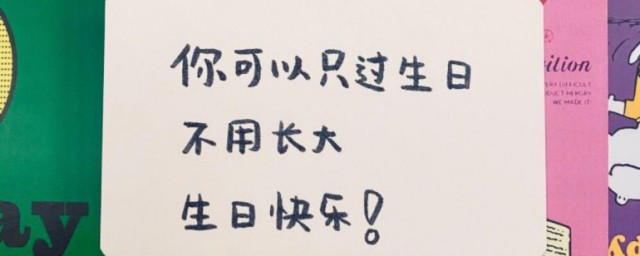 你可以只过生日
不用长大
生日快乐!
ition
VERY DIFFICULT
WE MADE IT!
ay